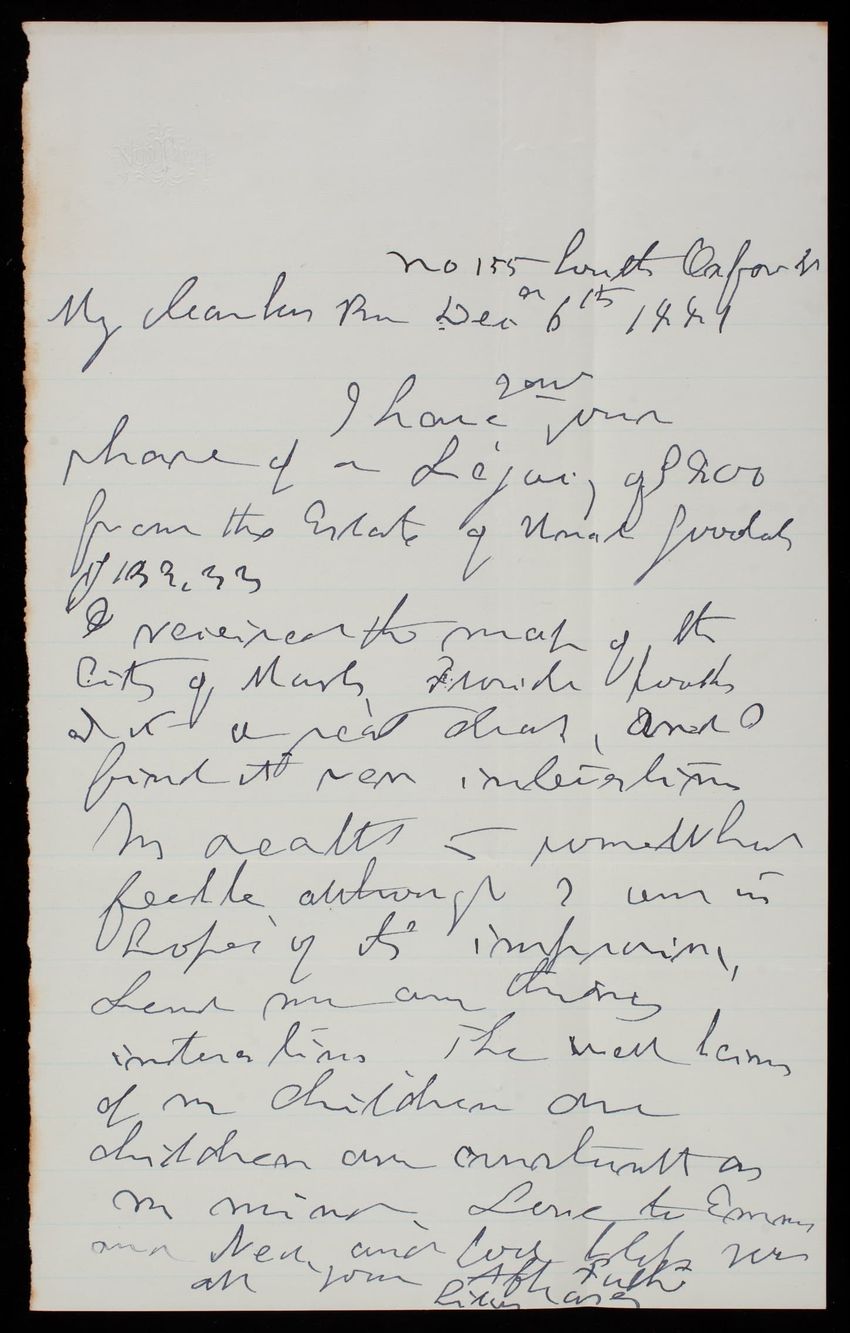 No 155 South Oxford St
My dear Son Dec 6th 1881
I have your
share of a Legacy of $800
from the Estate of
$133.33
I received the map of the
City of Florida
it a great deal, and
find it very interesting
My health is somewhat
feeble although I am in
hopes of its improving,
Send me any thing
interesting The well being
of my children and
children are constantly on
my mind Love to Emma
and Ned, and God bless you
all your Aff. Father